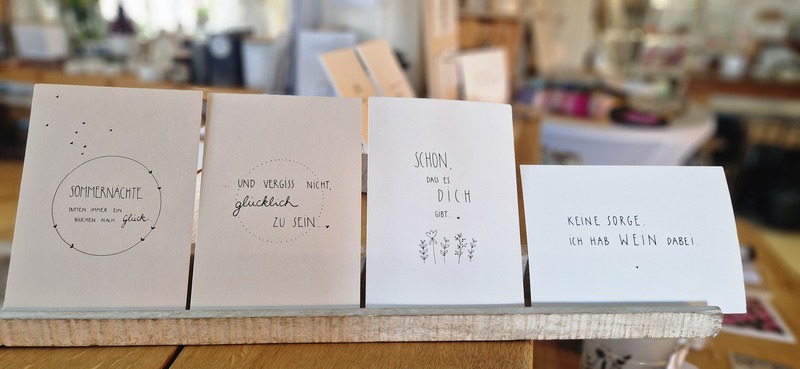 SOMMERNÄCHTE
DUFTEN IMMER EIN
BISSCHEN NACH Glück
... UND VERGISS NICHT,
glücklich
ZU SEIN...
SCHÖN,
DASS ES
DICH
GIBT...
KEINE SORGE.
ICH HAB WEIN DABEI.